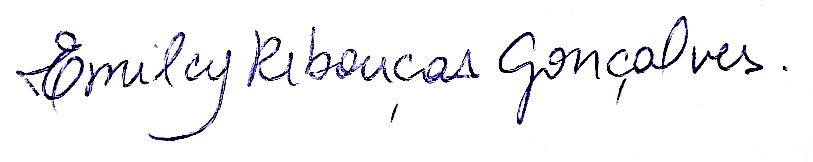 Emilcy Ribouças Gonçalves.